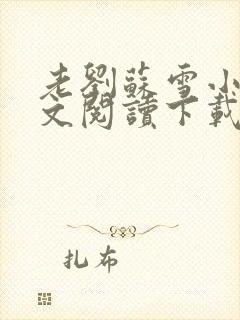 老劉蘇雪小
文閱讀下載
扎布